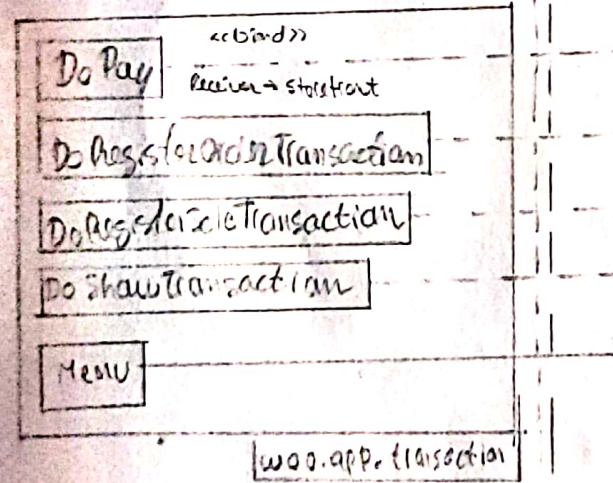 <<bind>>
DoPay
Receiver → Storefront
DoRegisterOrderTransaction
DoRegisterSaleTransaction
DoShowTransaction
Menu
woo.app.transaction